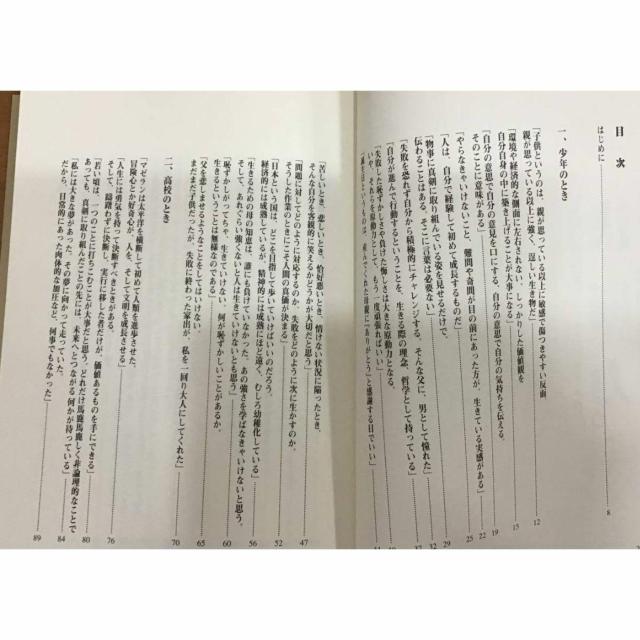 目 次
はじめに 8
一、少年のとき
「子供というのは、親が思っている以上に敏感で傷つきやすい反面、
親が思っている以上に強く、逞しい生き物だ」 12
「環境や経済的な側面に左右されない、しっかりした価値観を
自分自身の中に築き上げることが大事になる」 15
「自分の意思で自分の意見を口にする、自分の意思で自分の気持ちを伝える、
そのことに意味がある」 19
「やらなきゃいけないこと、難問や奇問が目の前にあった方が、生きている実感がある」 22
「人は、自分で経験して初めて成長するものだ」 25
「物事に真剣に取り組んでいる姿を見せるだけで、
伝わることはある。そこに言葉は必要ない」 29
「失敗を恐れず自分から積極的にチャレンジする、そんな父に、男として憧れた」 32
「自分が進んで行動するということを、生きる際の理念、哲学として持っている」 37
「失敗した恥ずかしさや負けた悔しさは大きな原動力となる。
いや、それらを原動力として、もう一度頑張ればいい」
「誕生日というものは、生んでくれた母親に『ありがとう』と感謝する日でいい」
「苦しいとき、悲しいとき、恰好悪いとき、情けない状況に陥ったとき、
そんな自分を客観的に笑えるかどうかが大切だと思う」 47
「問題に対してどのように対応するのか、失敗をどのように次に生かすのか。
そうした作業のときにこそ人間の真価が決まる」 52
「日本という国は、どこを目指して歩いていけばいいのだろう。
経済的には成熟しているが、精神的には成熟にほど遠く、むしろ幼稚化している」 56
「生きるための母の知恵は、誰にも負けていなかった。あの強さを学ばなきゃいけないと思う。
そしてあれくらい強くないと人は生きていけないとも思う」 60
「恥ずかしがってちゃ、生きていけない。何が恥ずかしいことがあるか。
生きるということは無様なのである」 65
「父を悲しませるようなことをしてはいけない。
まだまだ子供だったが、失敗に終わった家出が、私を一回り大人にしてくれた」 70
二、高校のとき
「マゼランは太平洋を横断して初めて人類を進歩させた。
冒険心とか好奇心が、人を、そして文明を成長させる」 76
「人生には勇気を持って決断すべきときがある。
そして、躊躇わずに決断し、実行に移した者だけが、価値あるものを手にできる」 80
「若い頃は、一つのことに打ちこむことが大事だと思う。どれだけ馬鹿馬鹿しく非論理的なことで
あっても、真剣に取り組んだことの先には、未来へとつながる何かが待っている」 84
「私には大きな夢があった。その夢に向かって走っていた。
だから、日常的にあった肉体的な加圧など、何事でもなかった」 89